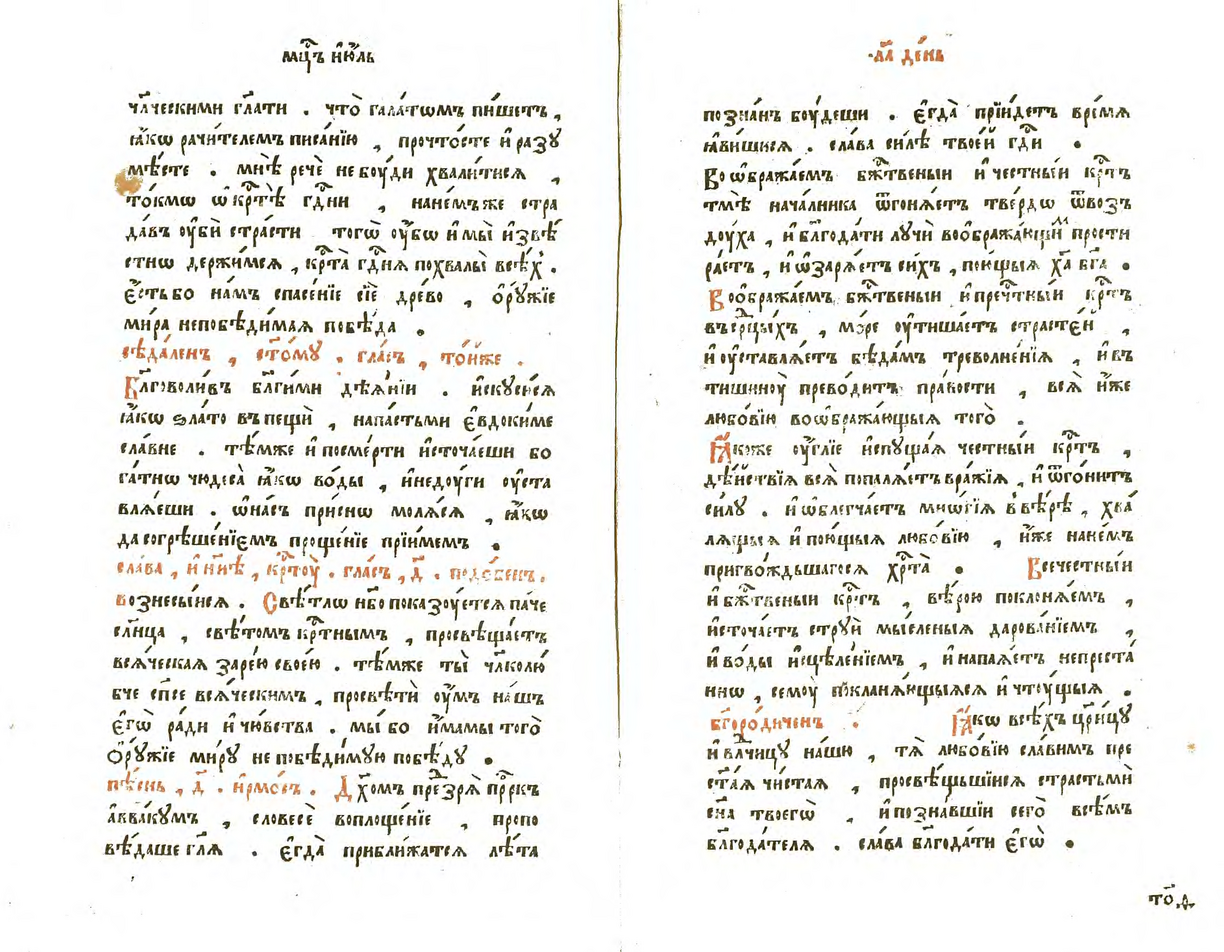 мцⷭ҇ъ и҆ю҆́ль
чл҃ческими гл҃ати . что̀ гала́тѡмъ пи́шетъ ,
ꙗ҆́кѡ рачи́телемъ писа́нїю , прочто́сте и҆ разꙋ
мѣ́сте . мнѣ́ речѐ не бꙋ́ди хвали́тися ,
то́кмѡ ѡ҆ крⷭ҇тѣ̀ гдⷭ҇ни , на не́мъ же стра
да́въ оу҆бѝ стра́сти тогѡ̀ оу҆́бѡ и҆ мы̀ и҆звѣ́
стнѡ держи́мся , крⷭ҇та̀ гдⷭ҇ня похвалы̀ всѣ́хъ .
є҆́сть бо на́мъ спасе́нїе сїѐ дре́во , о҆рꙋ́жїе
ми́ра непобѣди́мая побѣ́да .
сѣда́ленъ , ст҃о́мꙋ . гла́съ , то́йже .
Бл҃говоли́въ бл҃ги́ми дѣѧ́нїи . и҆скꙋси́ся
ꙗ҆́кѡ ѕла́то въ пещѝ , напа́стьми є҆вдоки́ме
сла́вне . тѣ́мже и҆ по сме́рти и҆сточа́еши бо
га́тнѡ чюдеса̀ ꙗ҆́кѡ во́ды , и҆ недꙋ́ги оу҆ста
вля́еши . ѡ҆ на́съ при́снѡ моля́ся , ꙗ҆́кѡ
да согрѣше́нїємъ проще́нїе прїи́мемъ .
сла́ва , и҆ ны́нѣ , крⷭ҇тꙋ̀ . гла́съ , д҃ . подо́бенъ .
вознесы́ися . Свѣ́тлѡ и҆́бо показꙋ́ется па́че
сл҃нца , свѣ́томъ крⷭ҇тнымъ , просвѣща́етъ
вся́ческая заре́ю свое́ю . тѣ́мже ты̀ чл҃колю́
бче сп҃се вся́ческимъ , просвѣтѝ оу҆́мъ на́шъ
є҆гѡ̀ ра́ди и҆ чю́вства . мы́ бо и҆́мамы того̀
о҆рꙋ́жїе ми́рꙋ не побѣди́мꙋю побѣ́дꙋ .
пѣ́снь , д҃ . і҆рмо́съ . Дх҃омъ презря̀ прⷪ҇ркъ
а҆ввакꙋ́мъ , словесѐ воплоще́нїе , пропо
вѣ́даше гл҃я . є҆гда̀ прибли́жатся лѣ́та
л҃а де́нь
позна́нъ бꙋ́деши . є҆гда̀ прїи́детъ вре́мя
ꙗ҆ви́шися . сла́ва си́лѣ твое́й гдⷭ҇и .
Воѡ҆бража́емъ бжⷭ҇твеныи и҆ че́стны́и крⷭ҇тъ
тмѣ̀ нача́лника ѿгоня́етъ тве́рдѡ ѿ во́зъ
дꙋха , и҆ бл҃года́ти лꙋчѝ воо҆бража́ющимъ прости
ра́етъ , и҆ ѡ҆заря́етъ си́хъ , пою́щыя хрⷭ҇а бг҃а .
Воо҆бража́емъ бжⷭ҇твеныи и҆ пречⷭ҇тны́и крⷭ҇тъ
въ срⷣцы́хъ , мо́ре оу҆тиша́етъ страсте́й ,
и҆ оу҆ставля́етъ бѣда́мъ треволне́нїя , и҆ въ
тишинꙋ̀ прево́дитъ пра́вости , вся̀ и҆́же
любо́вїю воѡ҆бража́ющыя того̀ .
Ꙗ҆́коже оу҆́глїе и҆спꙋща́я честны́и крⷭ҇тъ ,
дѣ́йствїя вся̀ попаля́етъ вра́жїя , и҆ ѿго́нитъ
си́лꙋ . и҆ ѡ҆блегча́етъ мнѡ́гїя в вѣ́рѣ , хва́
лящыя и҆ пою́щыя любо́вїю , и҆́же на не́мъ
пригво́ждьшагося хрⷭ҇та̀ . Всече́стныи
и҆ бжⷭ҇твеныи крⷭ҇тъ , вѣ́рою поклоня́емъ ,
и҆сточа́етъ стрꙋѝ мы́сленыя дарова́нїємъ ,
и҆ во́ды и҆сцѣле́нїємъ , и҆ напая́етъ непреста́
ннѡ , семꙋ̀ покланя́ющыяся и҆ чтꙋ́щыя .
бг҃оро́диченъ . Ꙗ҆́кѡ всѣ́хъ цр҃и́цꙋ
и҆ влⷣчицꙋ на́шю , тя̀ любо́вїю сла́вимъ пре
ст҃а́я чи́стая , просвѣщьшїися страстьмѝ
сн҃а твоегѡ̀ , и҆ позна́вшїи сего̀ всѣ́мъ
бл҃года́теля . сла́ва бл҃года́ти є҆гѡ̀ .